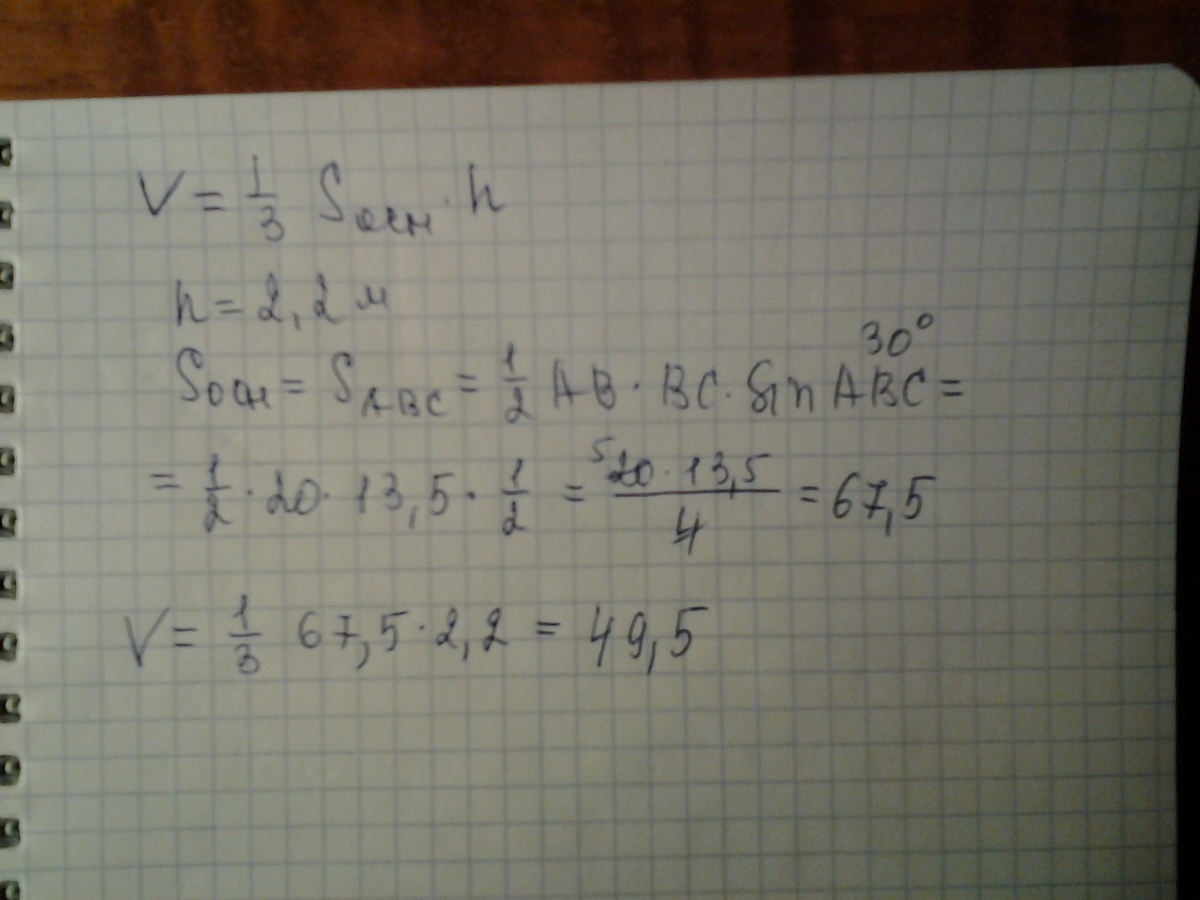 V = 1/3 Sосн · h
h = 2,2 м
30°
Sосн = S ABC = 1/2 AB · BC · Sin ABC =
= 1/2 · 20 · 13,5 · 1/2 = 5 20 · 13,5 / 4 = 67,5
V = 1/3 67,5 · 2,2 = 49,5